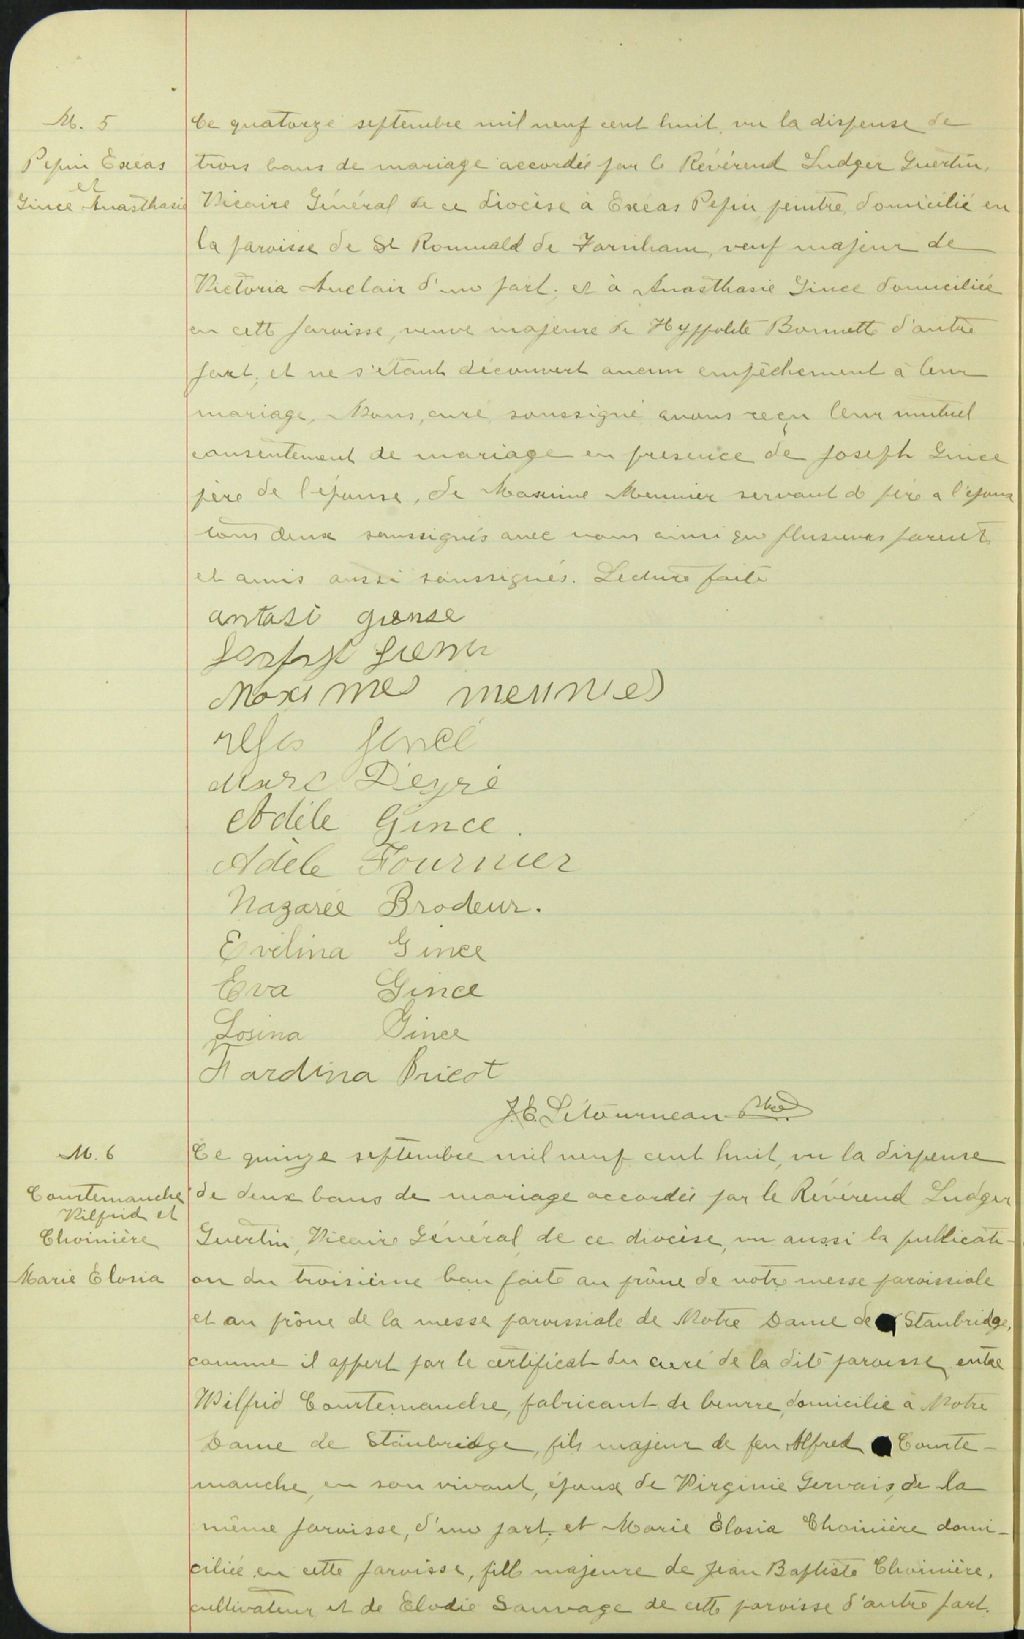 M. 5
Pepin Exeas
et
Gince Anasthasie
Ce quatorze septembre mil neuf cent huit, vu la dispense de
trois bans de mariage accordée par le Révérend Ludger Guertin,
Vicaire Général de ce diocèse à Exéas Pepin peintre, domicilié en
la paroisse de St Romuald de Farnham, veuf majeur de
Victoria Auclair d'une part, et à Anasthasie Gince domiciliée
en cette paroisse, veuve majeure de Hyppolite Bonnette d'autre
part, et ne s'étant découvert aucun empêchement à leur
mariage, Nous, curé, soussigné avons reçu leur mutuel
consentement de mariage en présence de Joseph Gince
père de l'épouse, de Maxime Meunier servant de père a l'époux
tous deux soussignés avec nous ainsi que plusieurs parents
et amis aussi soussignés. Lecture faite
antasi giense
Maximes meunies
regis gencé
Marc Dieyré
Adèle Gince.
Adèle Fournier
Nazarée Brodeur.
Evilina Gince
Eva Gince
Losina Gince
Fardina Bricot
J.E. Létourneau Ptre
M. 6
Courtemanche
Wilfrid et
Choinière
Marie Elosia
Ce quinze septembre mil neuf cent huit, vu la dispense
de deux bans de mariage accordée par le Révérend Ludger
Guertin, Vicaire Général de ce diocèse, vu aussi la publicati-
on du troisième ban faite au prône de notre messe paroissiale
et au prône de la messe paroissiale de Notre Dame de Stanbridge,
comme il appert par le certificat du curé de la dite paroisse, entre
Wilfrid Courtemanche, fabricant de beurre, domicilié à Notre
Dame de Stanbridge, fils majeur de feu Alfred Courte-
manche, en son vivant, époux de Virginie Gervais, de la
même paroisse, d'une part, et Marie Elosia Choinière domi-
ciliée en cette paroisse, fille majeure de Jean Baptiste Choinière,
cultivateur et de Elodie Sauvage de cette paroisse d'autre part.